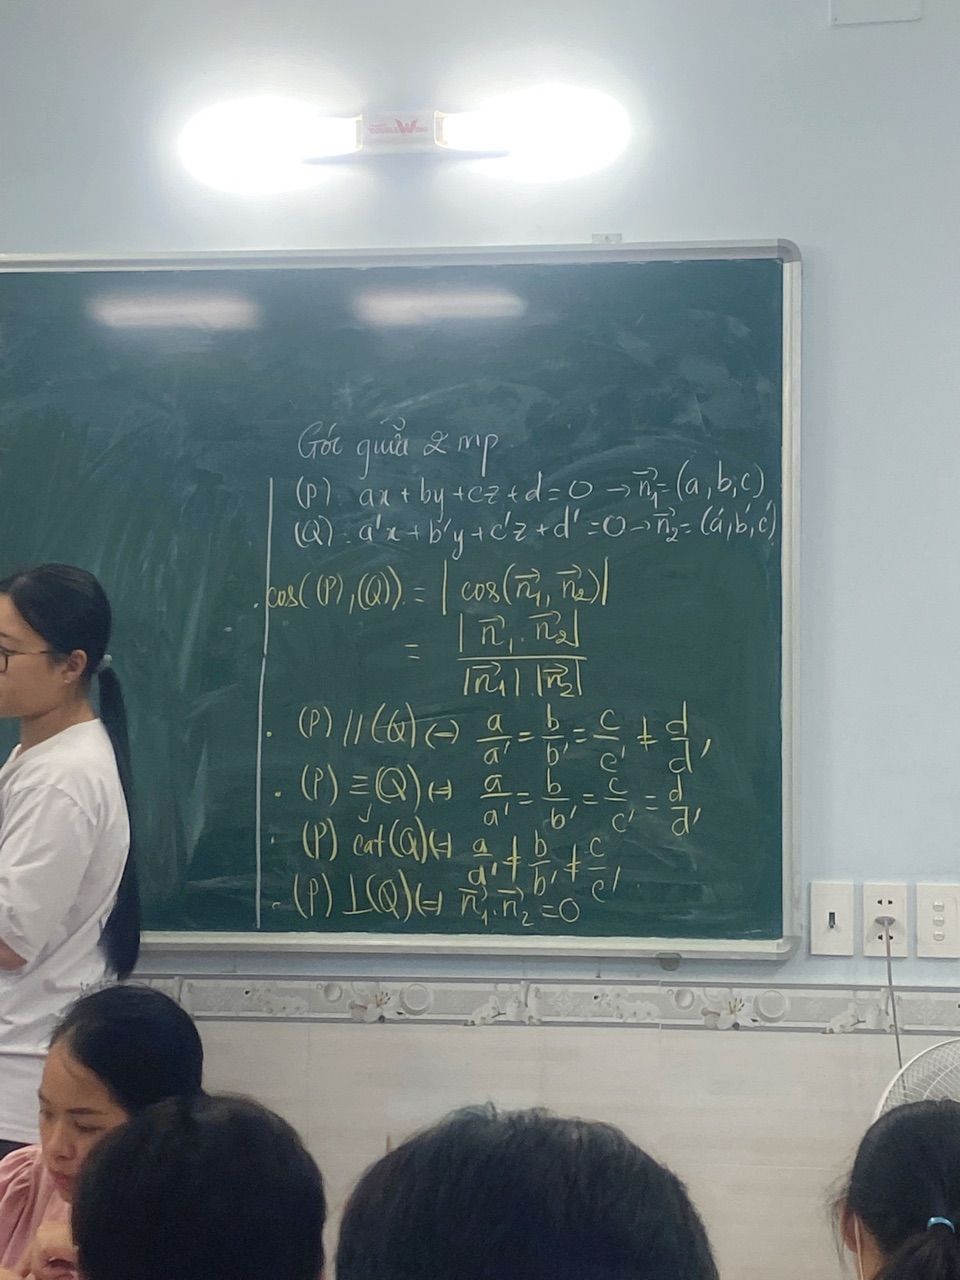 Góc giữa 2 mp
(P): ax + by + cz + d = 0 → n₁⃗ = (a, b, c)
(Q): a'x + b'y + c'z + d' = 0 → n₂⃗ = (a', b', c')
. cos((P), (Q)) = | cos(n₁⃗, n₂⃗) |
= |n₁⃗ . n₂⃗| / |n₁⃗| . |n₂⃗|
. (P) // (Q) ⇔ a/a' = b/b' = c/c' ≠ d/d'
. (P) ≡ (Q) ⇔ a/a' = b/b' = c/c' = d/d'
. (P) cắt (Q) ⇔ a/a' ≠ b/b' ≠ c/c'
. (P) ⊥ (Q) ⇔ n₁⃗ . n₂⃗ = 0